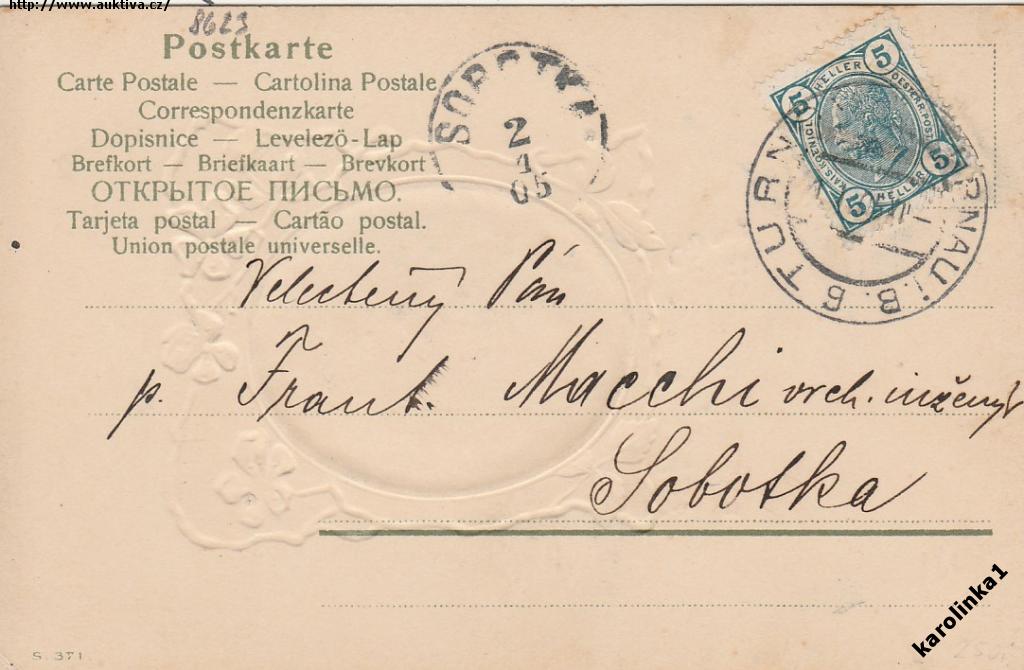 http://www.auktiva.cz/
8623
Postkarte
Carte Postale — Cartolina Postale
Correspondenzkarte
Dopisnice — Levelező-Lap
Brefkort — Briefkaart — Brevkort
ОТКРЫТОЕ ПИСЬМО.
Tarjeta postal — Cartão postal.
Union postale universelle.
SOBOTKA
2
1
05
5 HELLER 5
KAIS. KOENIGL. OESTERR. POST
5 HELLER 5
TURN
RNAU i. B.
Velectený Pán
p. Frant. Macchi vrch. inženýr
Sobotka
S. 371.
karolinka1